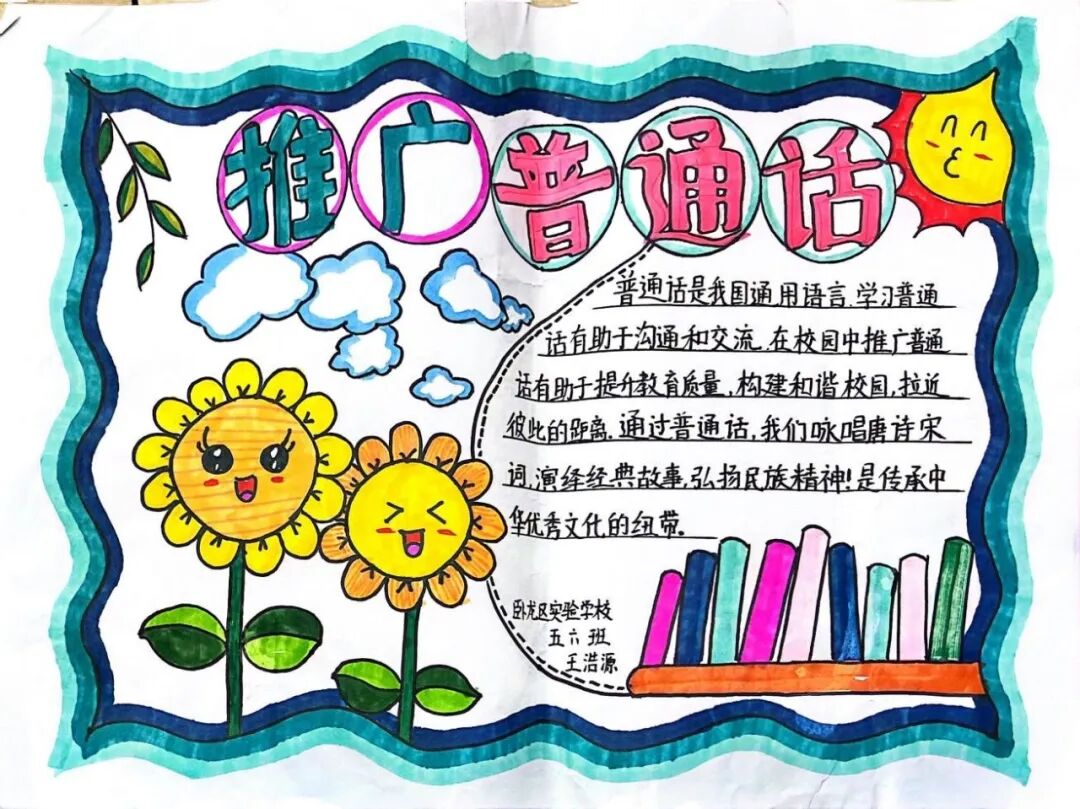 推广普通话
普通话是我国通用语言.学习普通
话有助于沟通和交流.在校园中推广普通
话有助于提升教育质量,构建和谐校园,拉近
彼此的距离.通过普通话,我们咏唱唐诗宋
词,演绎经典故事,弘扬民族精神!是传承中
华优秀文化的纽带.
卧龙区实验学校
五六班
王浩源